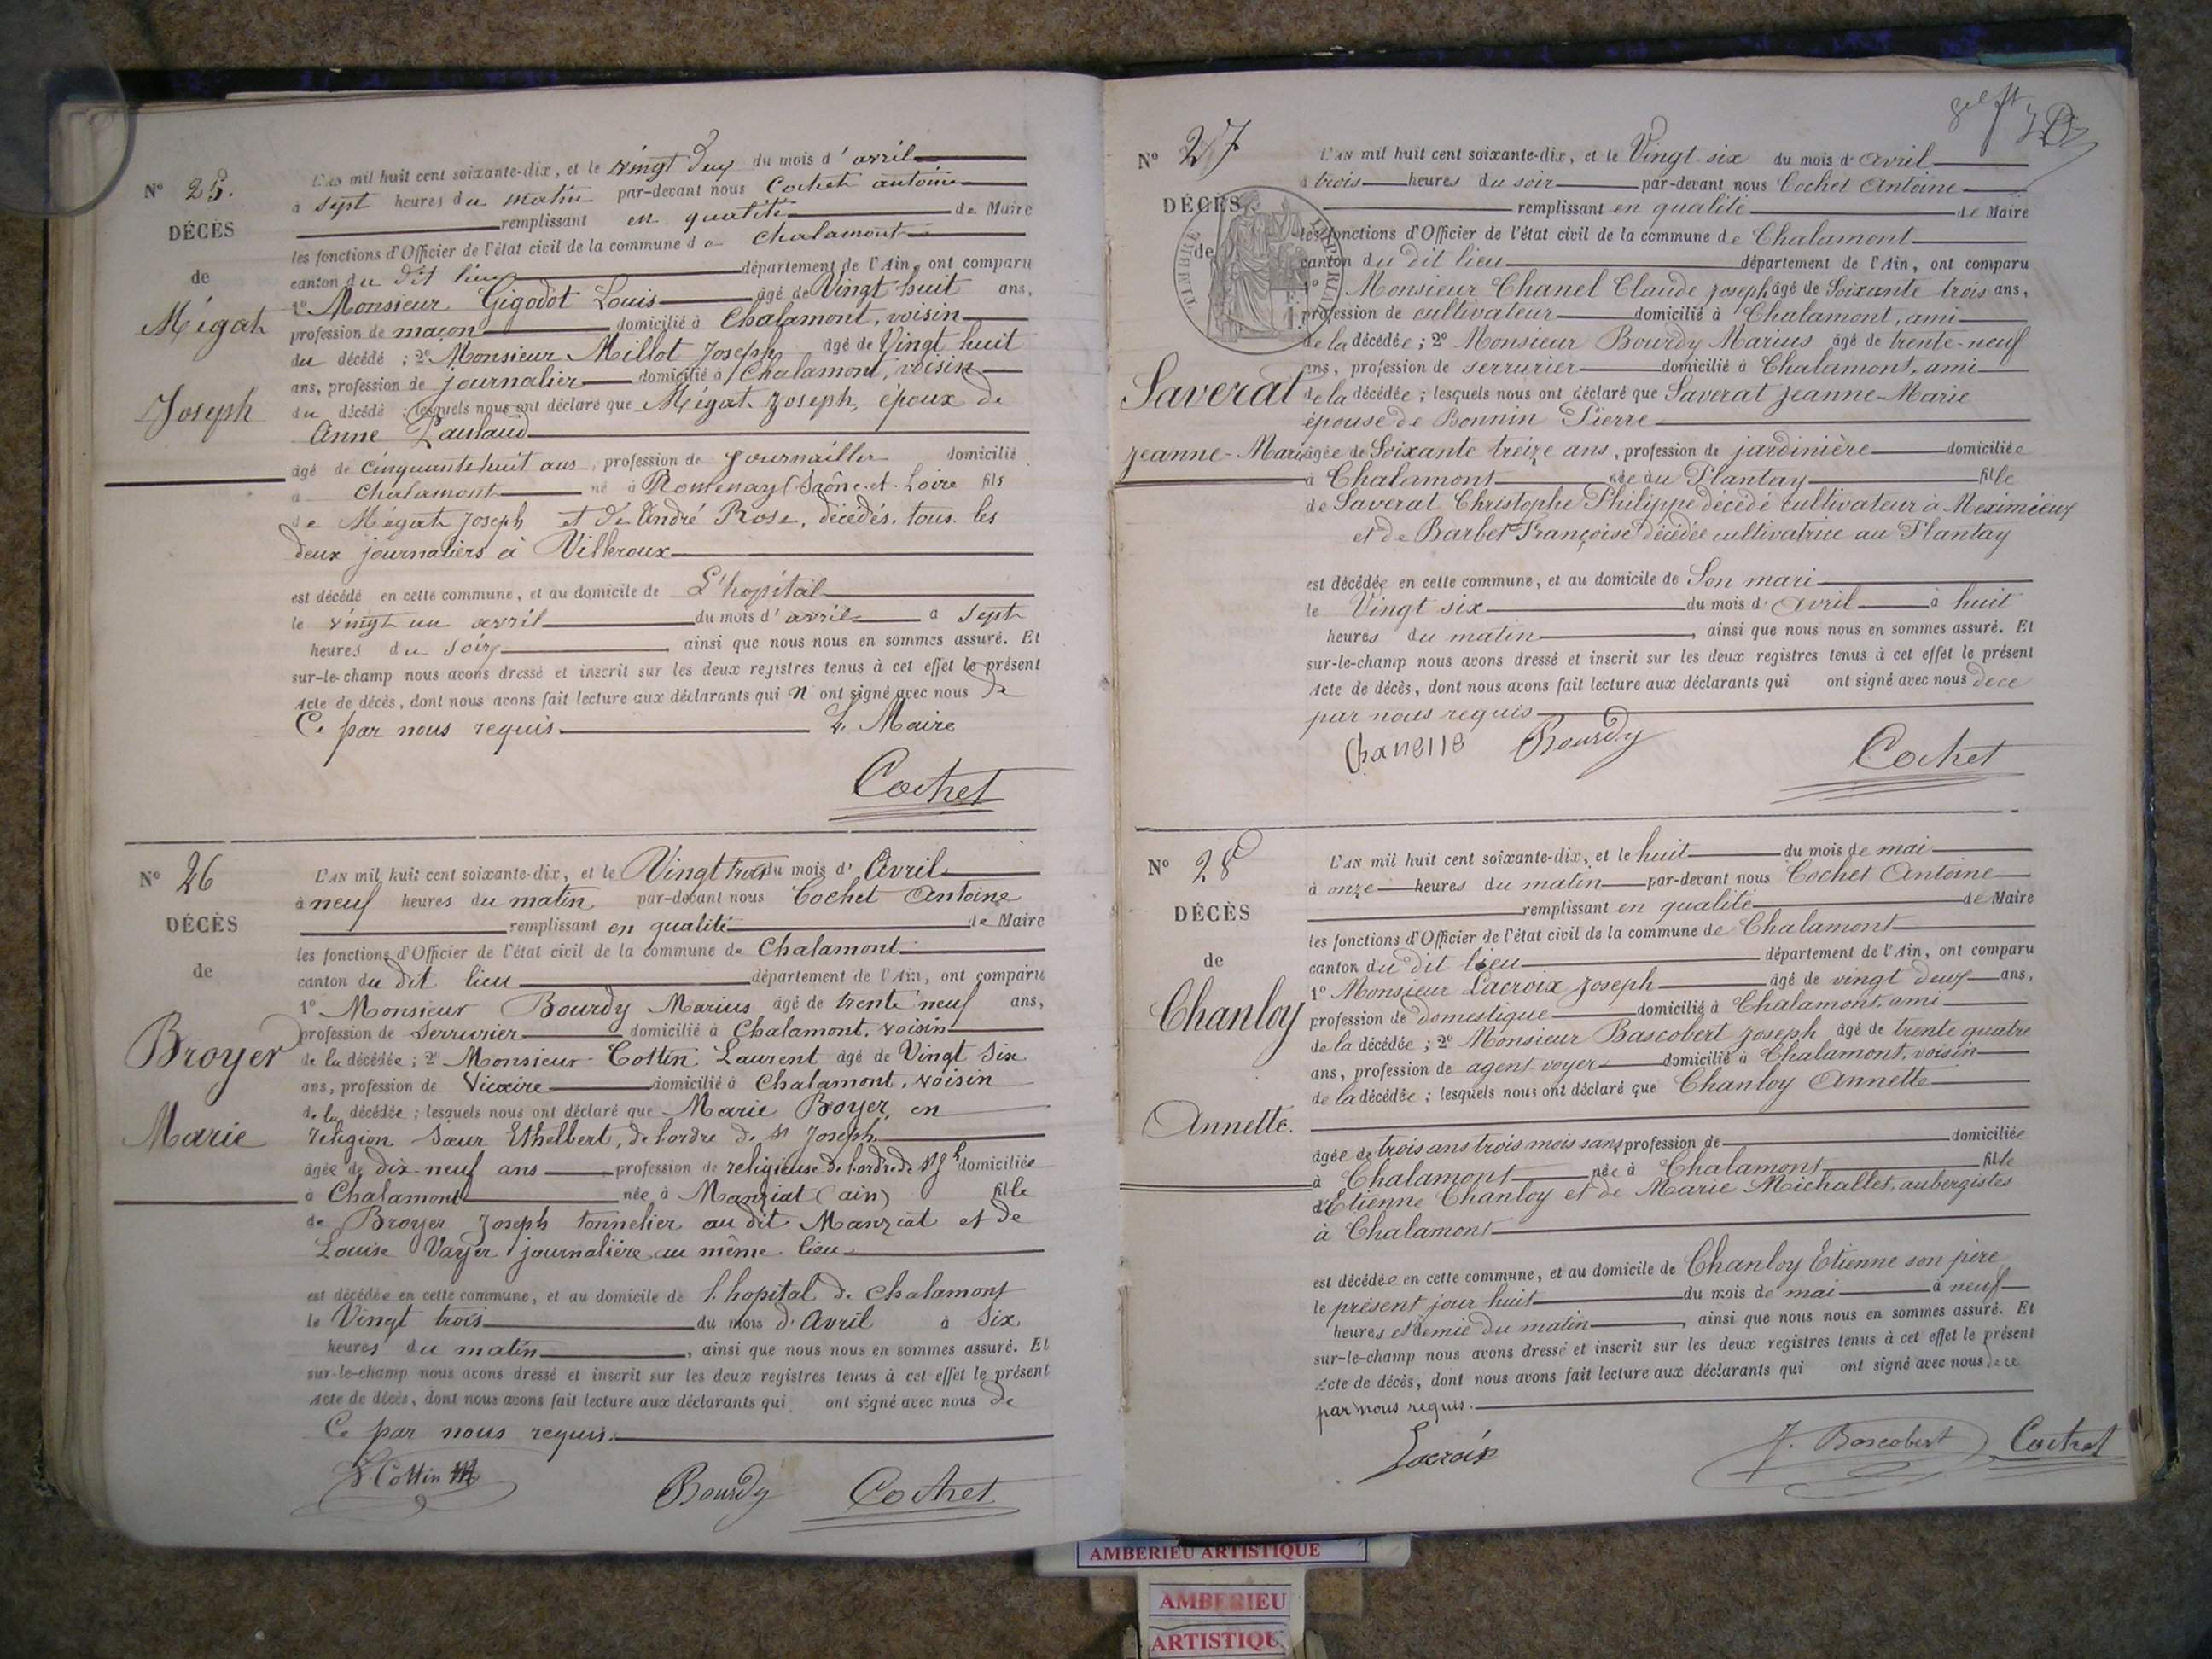 N° 25.
DÉCÈS
de
Mégat
Joseph
L'AN mil huit cent soixante-dix, et le vingt deux du mois d'avril
à sept heures du matin par-devant nous Cochet antoine
remplissant en qualité de Maire
les fonctions d'Officier de l'état civil de la commune de Chalamont
canton du dit lieu département de l'Ain, ont comparu
1° Monsieur Gigodot Louis âgé de Vingt huit ans,
profession de maçon domicilié à Chalamont, voisin
du décédé ; 2° Monsieur Millot Joseph âgé de Vingt huit
ans, profession de journalier domicilié à Chalamont, voisin
du décédé ; lesquels nous ont déclaré que Mégat Joseph, époux de
Anne
âgé de cinquante huit ans, profession de journaillier domicilié
à Chalamont né à Romenay (Saône-et-Loire fils
de Mégat Joseph et de André Rose, décédés, tous les
deux journaliers à Villeroux
est décédé en cette commune, et au domicile de L'hopital
le vingt un avril du mois d'avril à sept
heures du soir, ainsi que nous nous en sommes assuré. Et
sur-le-champ nous avons dressé et inscrit sur les deux registres tenus à cet effet le présent
Acte de décès, dont nous avons fait lecture aux déclarants qui n'ont signé avec nous de
Ce par nous requis. Le Maire
Cochet
N° 26
DÉCÈS
de
Broyer
Marie
L'AN mil huit cent soixante-dix, et le Vingt trois du mois d'Avril
à neuf heures du matin par-devant nous Cochet Antoine
remplissant en qualité de Maire
les fonctions d'Officier de l'état civil de la commune de Chalamont
canton du dit lieu département de l'Ain, ont comparu
1° Monsieur Bourdy Marius âgé de trente neuf ans,
profession de Serrurier domicilié à Chalamont, voisin
de la décédée ; 2° Monsieur Cottin Laurent âgé de Vingt Six
ans, profession de Vicaire domicilié à Chalamont, voisin
de la décédée ; lesquels nous ont déclaré que Marie Broyer, en
religion Sœur Ethelbert, de l'ordre de St Joseph
âgée de dix-neuf ans profession de religieuse de l'ordre de St Jh domiciliée
à Chalamont née à Manziat (ain) fille
de Broyer Joseph tonnelier au dit Manziat et de
Louise Vayer journalière au même lieu
est décédée en cette commune, et au domicile de l'hopital de Chalamont
le Vingt trois du mois d'Avril à Six
heures du matin, ainsi que nous nous en sommes assuré. Et
sur-le-champ nous avons dressé et inscrit sur les deux registres tenus à cet effet le présent
Acte de décès, dont nous avons fait lecture aux déclarants qui ont signé avec nous de
Ce par nous requis.
Cottin Bourdy Cochet
N° 27
DÉCÈS
de
Saverat
Jeanne-Marie
TIMBRE IMPERIAL
L'AN mil huit cent soixante-dix, et le Vingt six du mois d'avril
à trois heures du soir par-devant nous Cochet Antoine
remplissant en qualité de Maire
les fonctions d'Officier de l'état civil de la commune de Chalamont
canton du dit lieu département de l'Ain, ont comparu
1° Monsieur Chanel Claude Joseph âgé de Soixante trois ans,
profession de cultivateur domicilié à Chalamont, ami
de la décédée ; 2° Monsieur Bourdy Marius âgé de trente-neuf
ans, profession de serrurier domicilié à Chalamont, ami
de la décédée ; lesquels nous ont déclaré que Saverat Jeanne-Marie
épouse de Bonnin Pierre
âgée de Soixante treize ans, profession de jardinière domiciliée
à Chalamont née au Plantay fille
de Saverat Christophe Philippe décédé cultivateur à Meximieux
et de Barbet Françoise décédée cultivatrice au Plantay
est décédée en cette commune, et au domicile de Son mari
le Vingt six du mois d'avril à huit
heures du matin, ainsi que nous nous en sommes assuré. Et
sur-le-champ nous avons dressé et inscrit sur les deux registres tenus à cet effet le présent
Acte de décès, dont nous avons fait lecture aux déclarants qui ont signé avec nous de ce
par nous requis
Bourdy Cochet
N° 28
DÉCÈS
de
Chanloy
Annette.
L'AN mil huit cent soixante-dix, et le huit du mois de mai
à onze heures du matin par-devant nous Cochet Antoine
remplissant en qualité de Maire
les fonctions d'Officier de l'état civil de la commune de Chalamont
canton du dit lieu département de l'Ain, ont comparu
1° Monsieur Lacroix Joseph âgé de vingt deux ans,
profession de domestique domicilié à Chalamont, ami
de la décédée ; 2° Monsieur Bascobert Joseph âgé de trente quatre
ans, profession de agent-voyer domicilié à Chalamont, voisin
de la décédée ; lesquels nous ont déclaré que Chanloy Annette
âgée de trois ans trois mois sans profession de domiciliée
à Chalamont née à Chalamont fille
d'Etienne Chanloy et de Marie Michallet, aubergistes
à Chalamont
est décédée en cette commune, et au domicile de Chanloy Etienne son père
le présent jour huit du mois de mai à neuf
heures et demie du matin, ainsi que nous nous en sommes assuré. Et
sur-le-champ nous avons dressé et inscrit sur les deux registres tenus à cet effet le présent
Acte de décès, dont nous avons fait lecture aux déclarants qui ont signé avec nous de ce
par nous requis.
Lacroix J. Bascobert Cochet
AMBERIEU ARTISTIQUE
AMBERIEU
ARTISTIQUE